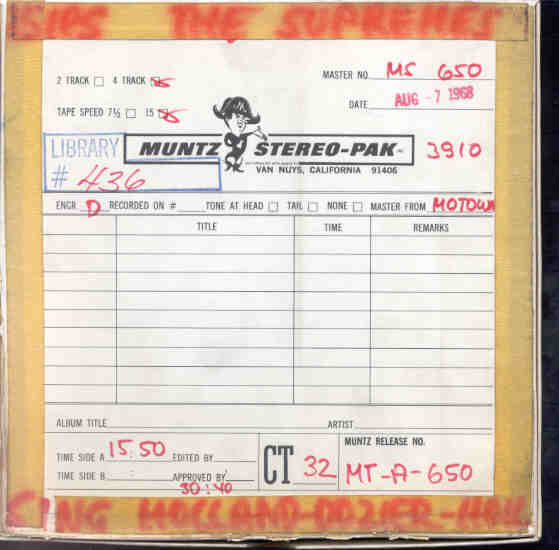 THE SUPREMES
2 TRACK 4 TRACK
MASTER NO. MS 650
TAPE SPEED 7½ 15
DATE AUG - 7 1968
LIBRARY
# 436
MUNTZ STEREO-PAK INC
3910
VAN NUYS, CALIFORNIA 91406
ENGR D RECORDED ON # TONE AT HEAD TAIL NONE MASTER FROM MOTOWN
TITLE TIME REMARKS
ALBUM TITLE ARTIST
TIME SIDE A 15:50 EDITED BY
TIME SIDE B : APPROVED BY
30:40
CT 32
MUNTZ RELEASE NO.
MT-A-650
SING HOLLAND-DOZIER-HOLL